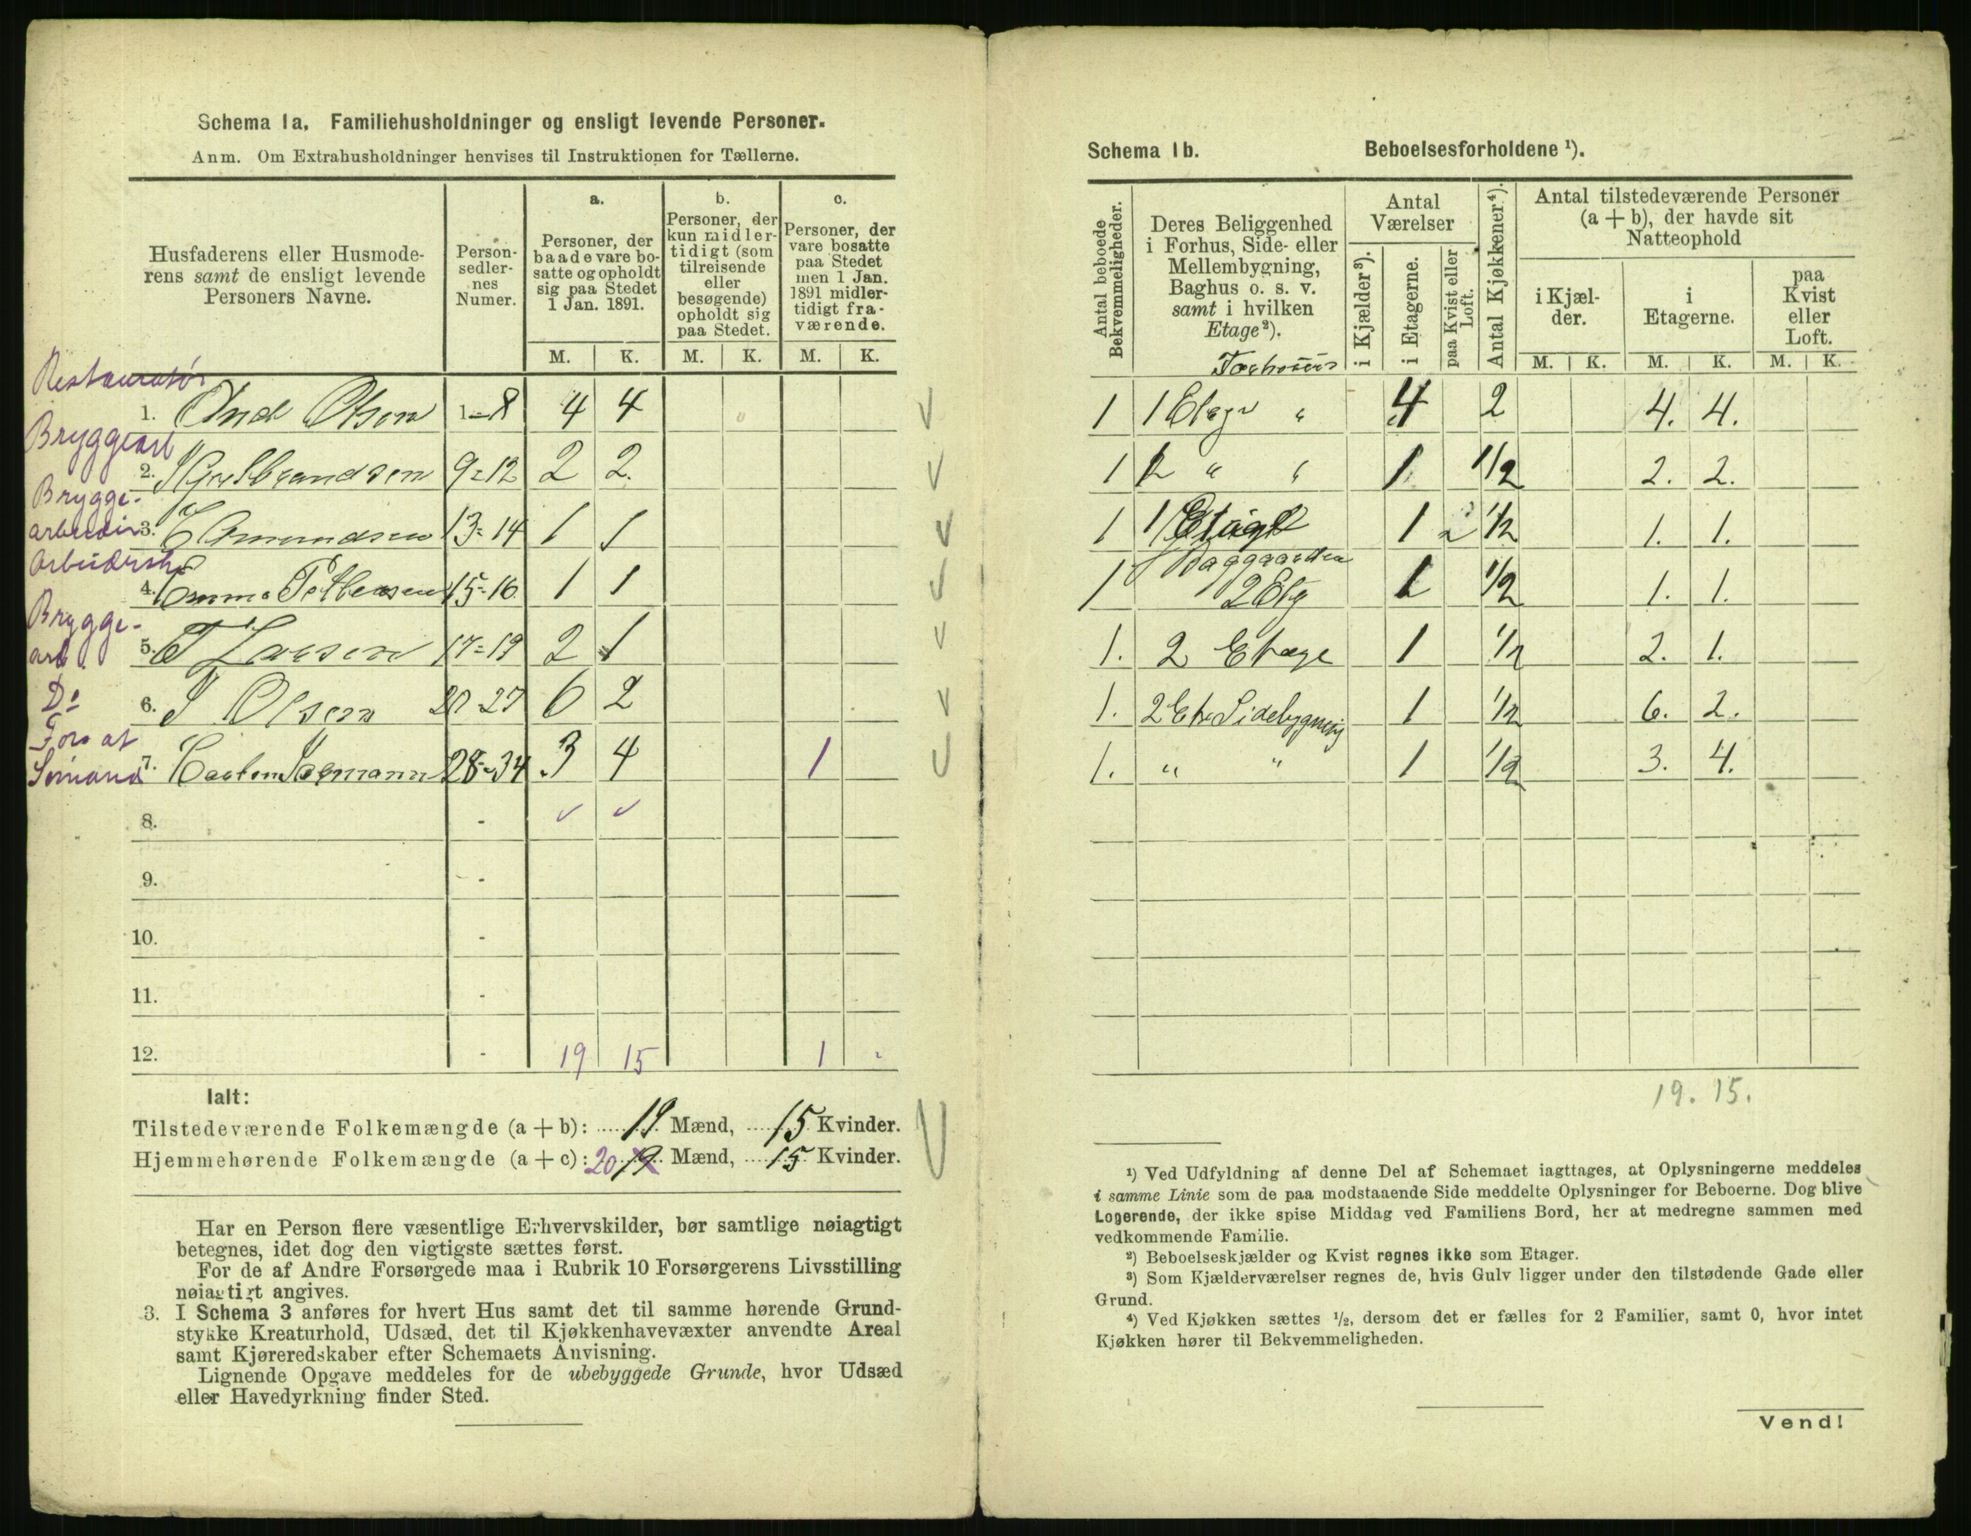 Schema 1a. Familiehusholdninger og ensligt levende Personer.
Anm. Om Extrahusholdninger henvises til Instruktionen for Tællerne.
Husfaderens eller Husmoderens samt de ensligt levende Personers Navne.
Personsedlernes Numer.
a.
Personer, der baade vare bosatte og opholdt sig paa Stedet 1 Jan. 1891.
b.
Personer, der kun midlertidigt (som tilreisende eller besøgende) opholdt sig paa Stedet.
c.
Personer, der vare bosatte paa Stedet men 1 Jan. 1891 midlertidigt fraværende.
M. K. M. K. M. K.
Restauratør
1. And Olsen 1-8 4 4
Bryggearb
2. 9=12 2 2.
Brygge-
arbeider 3. Amundsen 13=14 1 1
4. Emma Pettersen 15-16 1 1
Brygge-
arb. 5. T Larsen 17=19 2 1
Do 6. I Olsen 20-27 6 2
Fors af
Sømand 7. 28-34 3 4 1
8. -
9. -
10. -
11. -
12. - 19 15 1 -
Ialt:
Tilstedeværende Folkemængde (a + b): 19 Mænd, 15 Kvinder.
Hjemmehørende Folkemængde (a + c): 20 19 Mænd, 15 Kvinder.
Har en Person flere væsentlige Erhvervskilder, bør samtlige nøiagtigt
betegnes, idet dog den vigtigste sættes først.
For de af Andre Forsørgede maa i Rubrik 10 Forsørgerens Livsstilling
nøiagtigt angives.
3. I Schema 3 anføres for hvert Hus samt det til samme hørende Grund-
stykke Kreaturhold, Udsæd, det til Kjøkkenhavevæxter anvendte Areal
samt Kjøreredskaber efter Schemaets Anvisning.
Lignende Opgave meddeles for de ubebyggede Grunde, hvor Udsæd
eller Havedyrkning finder Sted.
Schema 1b. Beboelsesforholdene ¹).
Antal beboede Bekvemmeligheder.
Deres Beliggenhed i Forhus, Side- eller Mellembygning, Baghus o. s. v. samt i hvilken Etage²).
Antal Værelser
i Kjælder³).
i Etagerne.
paa Kvist eller Loft.
Antal Kjøkkener⁴).
Antal tilstedeværende Personer (a + b), der havde sit Natteophold
i Kjælder.
i Etagerne.
paa Kvist eller Loft.
M. K. M. K. M. K.
1 1 Etage " 4 2 4. 4.
1 " " 1 1/2 2. 2.
1 1 1 1/2 1. 1.
Baggaarden
1 2 Etg 1 1/2 1. 1.
1. 2 Etage 1 1/2 2. 1.
1. 2 Et Sidebygning 1 1/2 6. 2.
1. " " 1 1/2 3. 4.
19. 15.
¹) Ved Udfyldning af denne Del af Schemaet iagttages, at Oplysningerne meddeles
i samme Linie som de paa modstaaende Side meddelte Oplysninger for Beboerne. Dog blive
Logerende, der ikke spise Middag ved Familiens Bord, her at medregne sammen med
vedkommende Familie.
²) Beboelseskjælder og Kvist regnes ikke som Etager.
³) Som Kjælderværelser regnes de, hvis Gulv ligger under den tilstødende Gade eller
Grund.
⁴) Ved Kjøkken sættes ½, dersom det er fælles for 2 Familier, samt 0, hvor intet
Kjøkken hører til Bekvemmeligheden.
Vend!